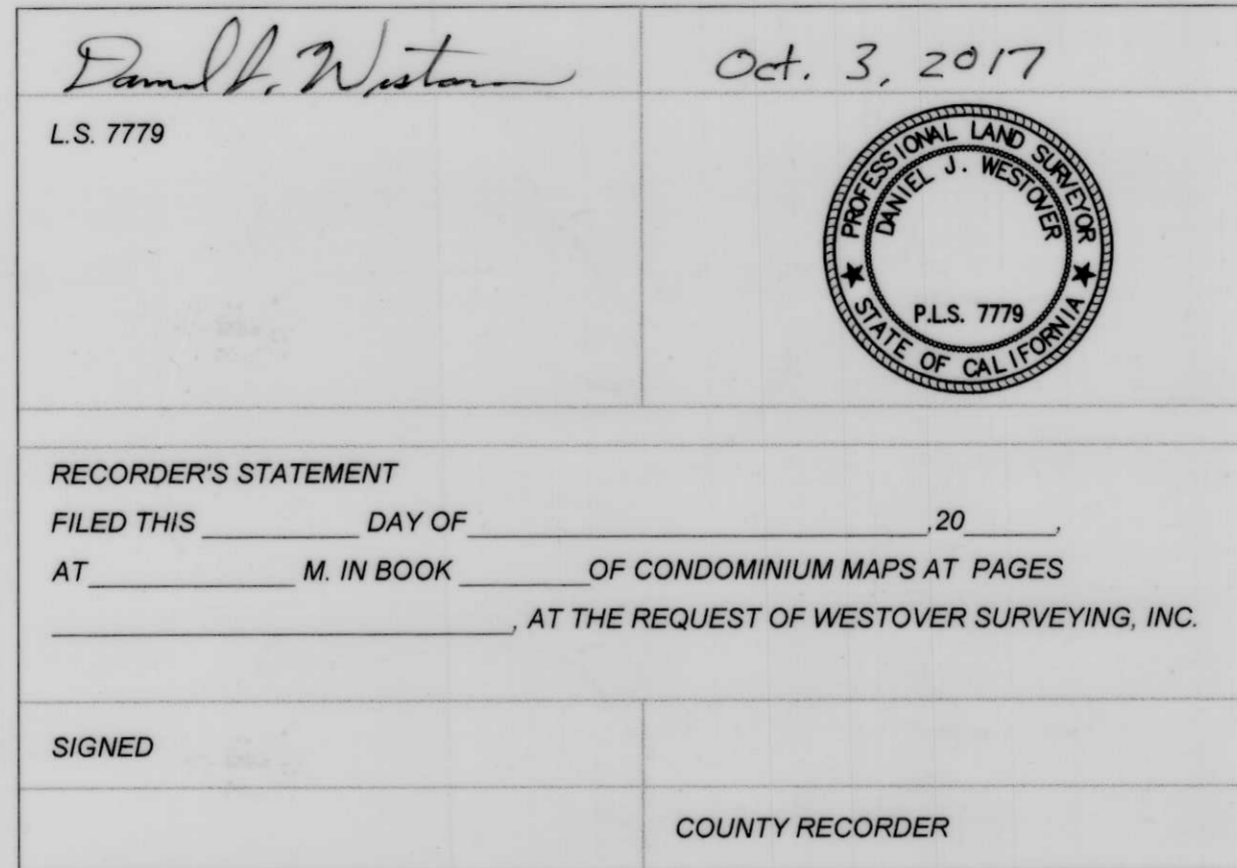 Daniel J. Westover Oct. 3, 2017
L.S. 7779
PROFESSIONAL LAND SURVEYOR
DANIEL J. WESTOVER
P.L.S. 7779
STATE OF CALIFORNIA
RECORDER'S STATEMENT
FILED THIS ________ DAY OF ________________________,20_____,
AT___________ M. IN BOOK _______OF CONDOMINIUM MAPS AT PAGES
________________________, AT THE REQUEST OF WESTOVER SURVEYING, INC.
SIGNED
COUNTY RECORDER